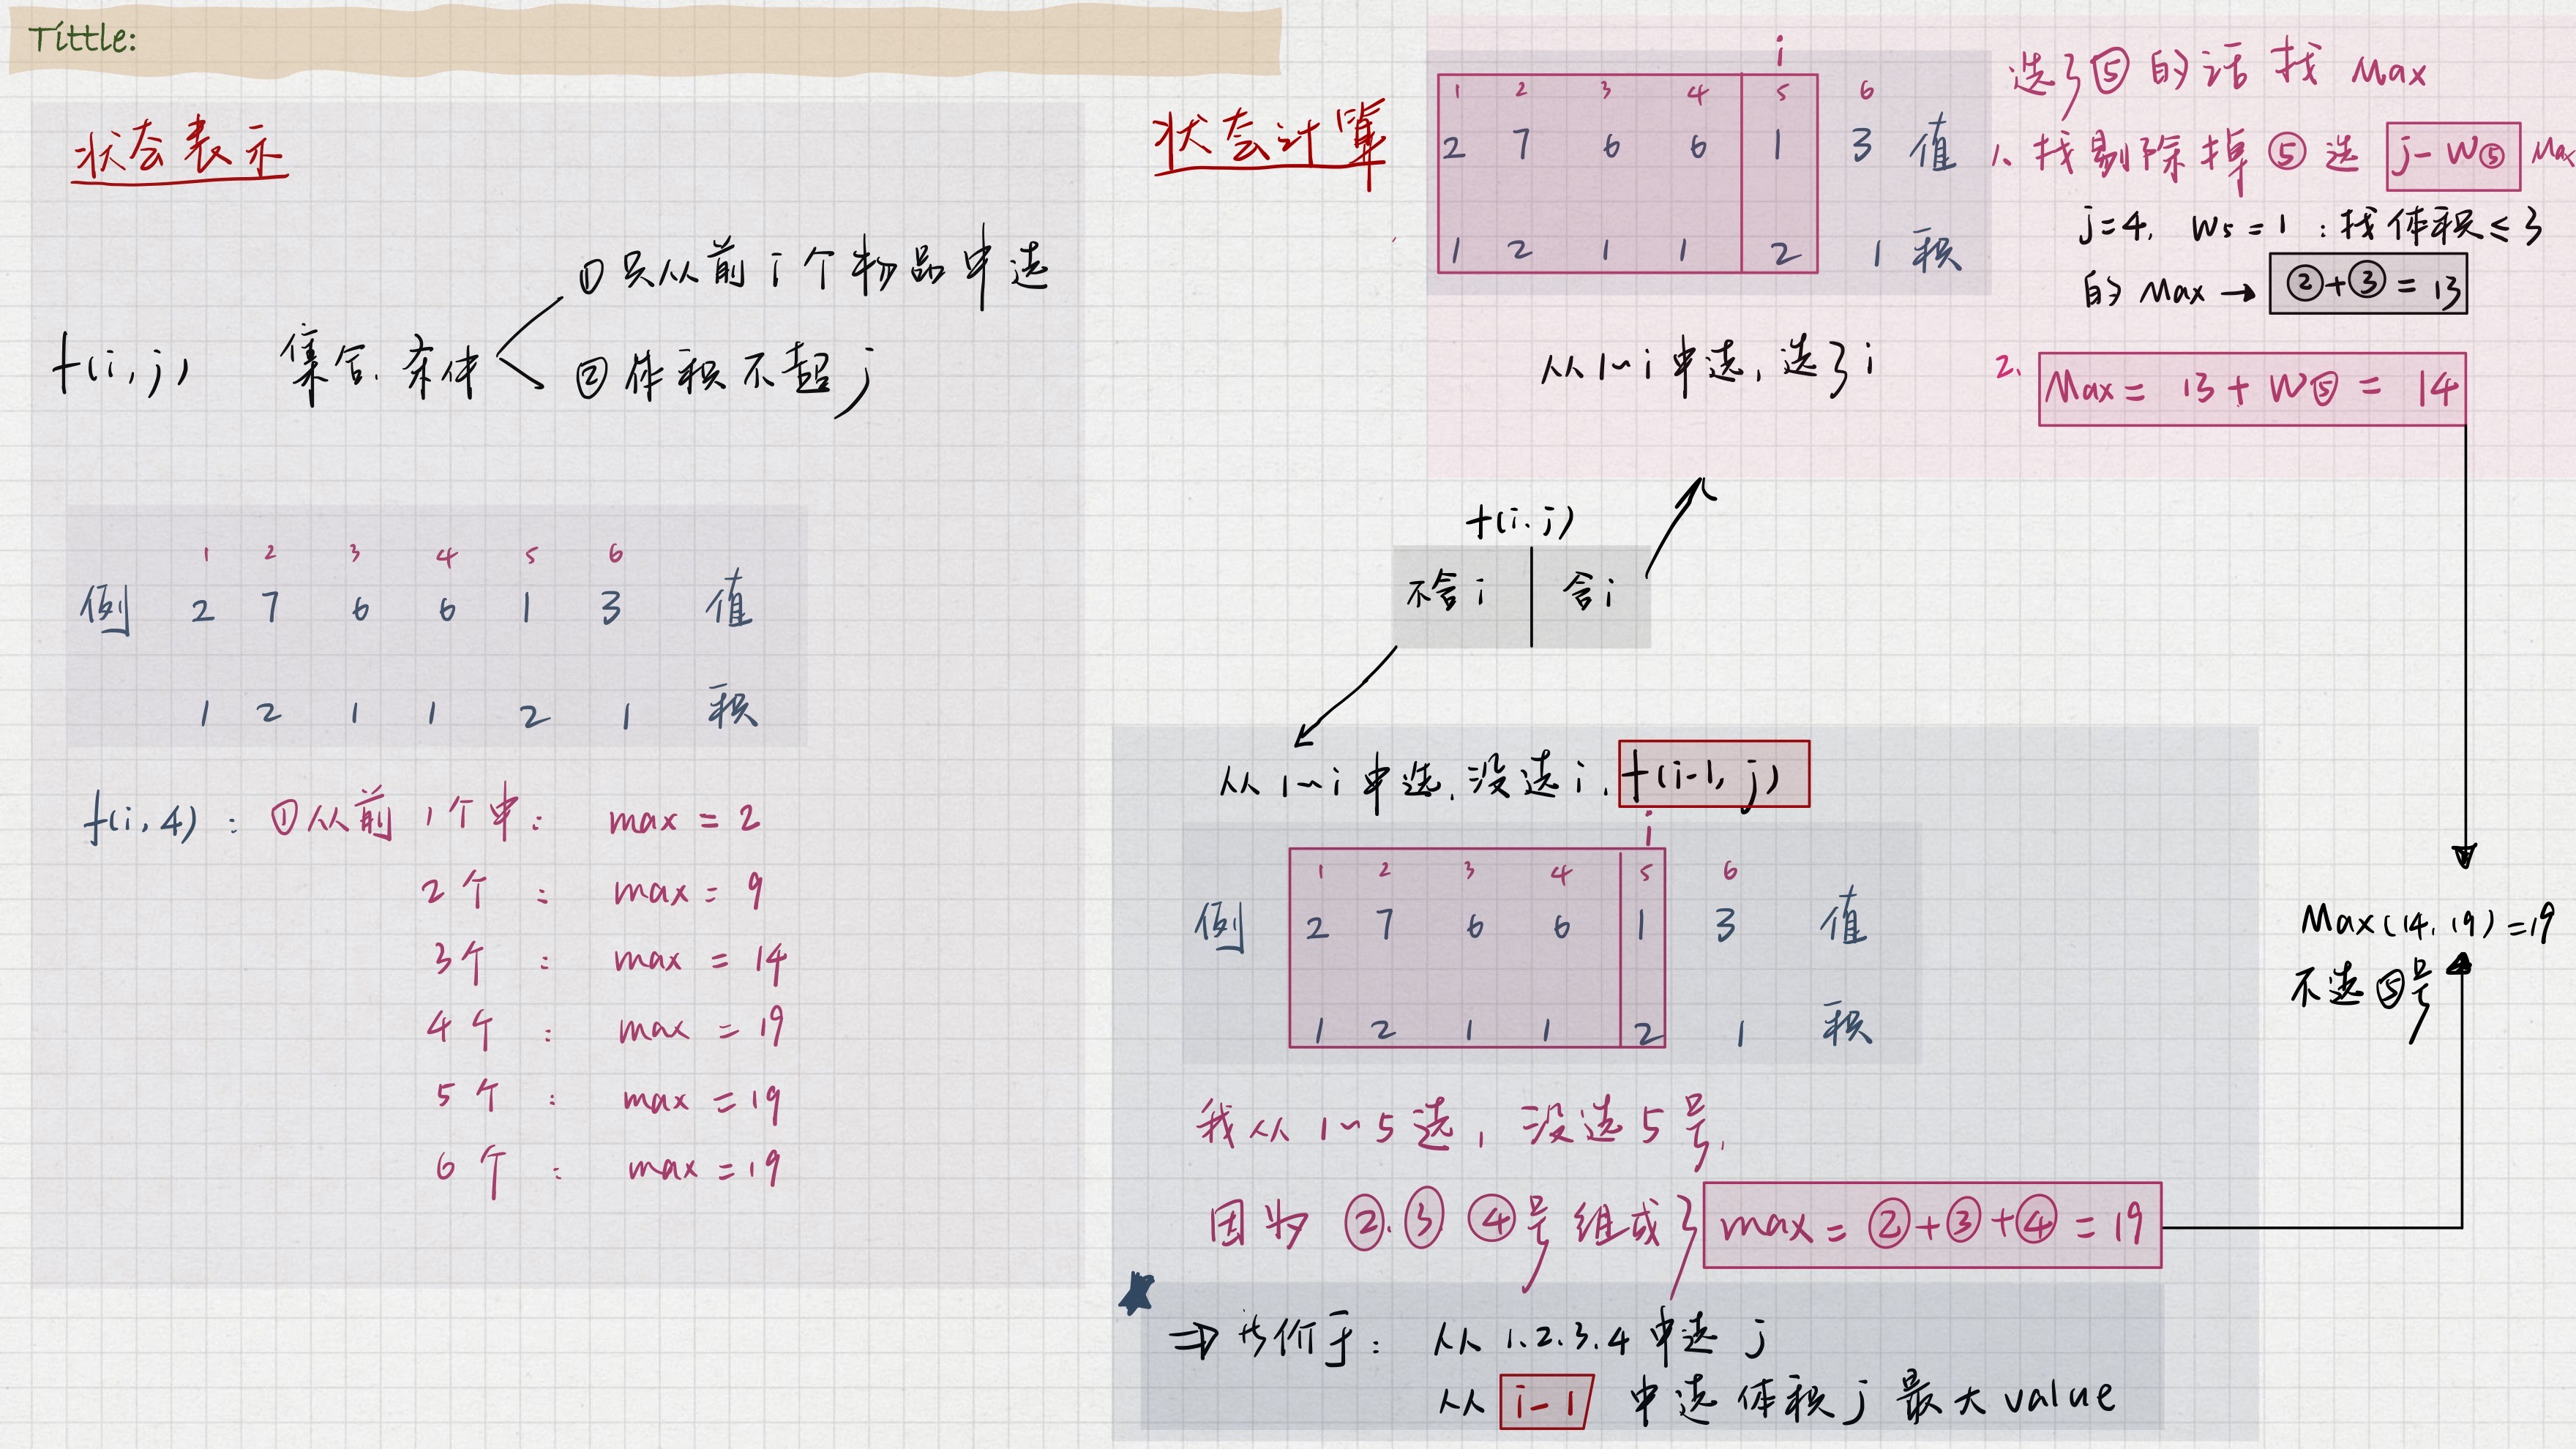 Tittle:
状态表示
f(i,j) 集合.条件
①只从前i个物品中选
②体积不超j
1 2 3 4 5 6
例 2 7 6 6 1 3 值
1 2 1 1 2 1 积
f(i,4): ①从前1个中: max=2
2个: max=9
3个: max=14
4个: max=19
5个: max=19
6个: max=19
状态计算
i
1 2 3 4 5 6
2 7 6 6 1 3 值
1 2 1 1 2 1 积
从1~i中选,选了i
选了⑤的话找Max
1、找剔除掉⑤选 j-W⑤ Max
j=4, W5=1 :找体积≤3
的Max→ ②+③=13
2. Max= 13+W⑤= 14
f(i.j)
不含i 含i
从1~i中选.没选i. f(i-1, j)
i
1 2 3 4 5 6
例 2 7 6 6 1 3 值
1 2 1 1 2 1 积
我从1~5选, 没选5号,
因为②.③④号组成了 max=②+③+④=19
Max(14.19)=19
不选⑤号
⇒ 等价于: 从1.2.3.4中选j
从 i-1 中选体积j最大value